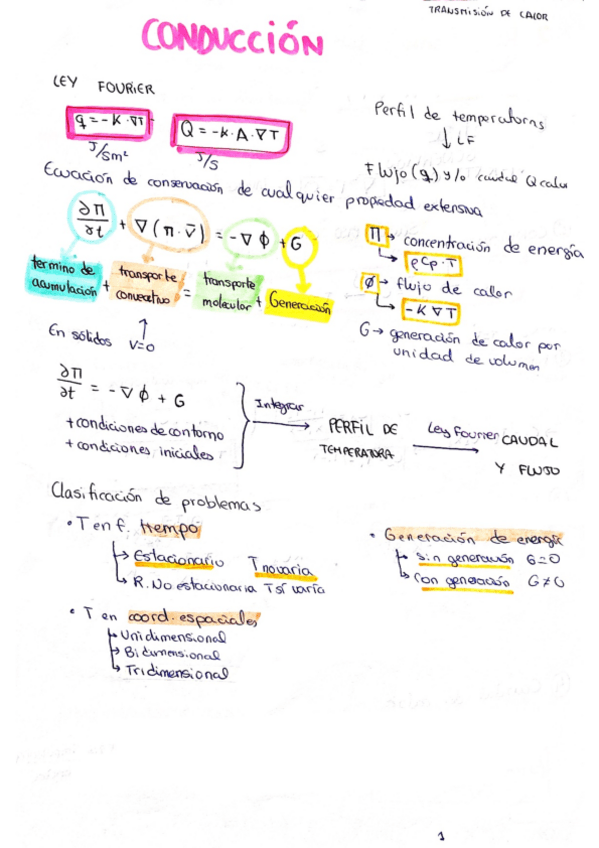 TRANSMISIÓN DE CALOR
CONDUCCIÓN
LEY FOURIER
q = -K · ∇T
J/sm²
Q = -K · A · ∇T
J/s
Perfil de temperaturas
↓ LF
Flujo (q) y/o caudal Q calor
Ecuación de conservación de cualquier propiedad extensiva
∂Π/∂t + ∇(Π · v̄) = -∇Φ + G
termino de acumulación + transporte convectivo = transporte molecular + Generación
Π → concentración de energía
↳ ρCp · T
Φ → flujo de calor
↳ -K∇T
G → generación de calor por
unidad de volumen
En sólidos v=0
∂Π/∂t = -∇Φ + G
+ condiciones de contorno
+ condiciones iniciales
Integrar
PERFIL DE
TEMPERATURA
Ley Fourier
CAUDAL
Y FLUJO
Clasificación de problemas
• T en f. tiempo
↳ Estacionario T no varia
↳ R. No estacionaria T sí varía
• T en coord. espaciales
↳ Unidimensional
↳ Bidimensional
↳ Tridimensional
• Generación de energía
↳ Sin generación G=0
↳ Con generación G≠0
1